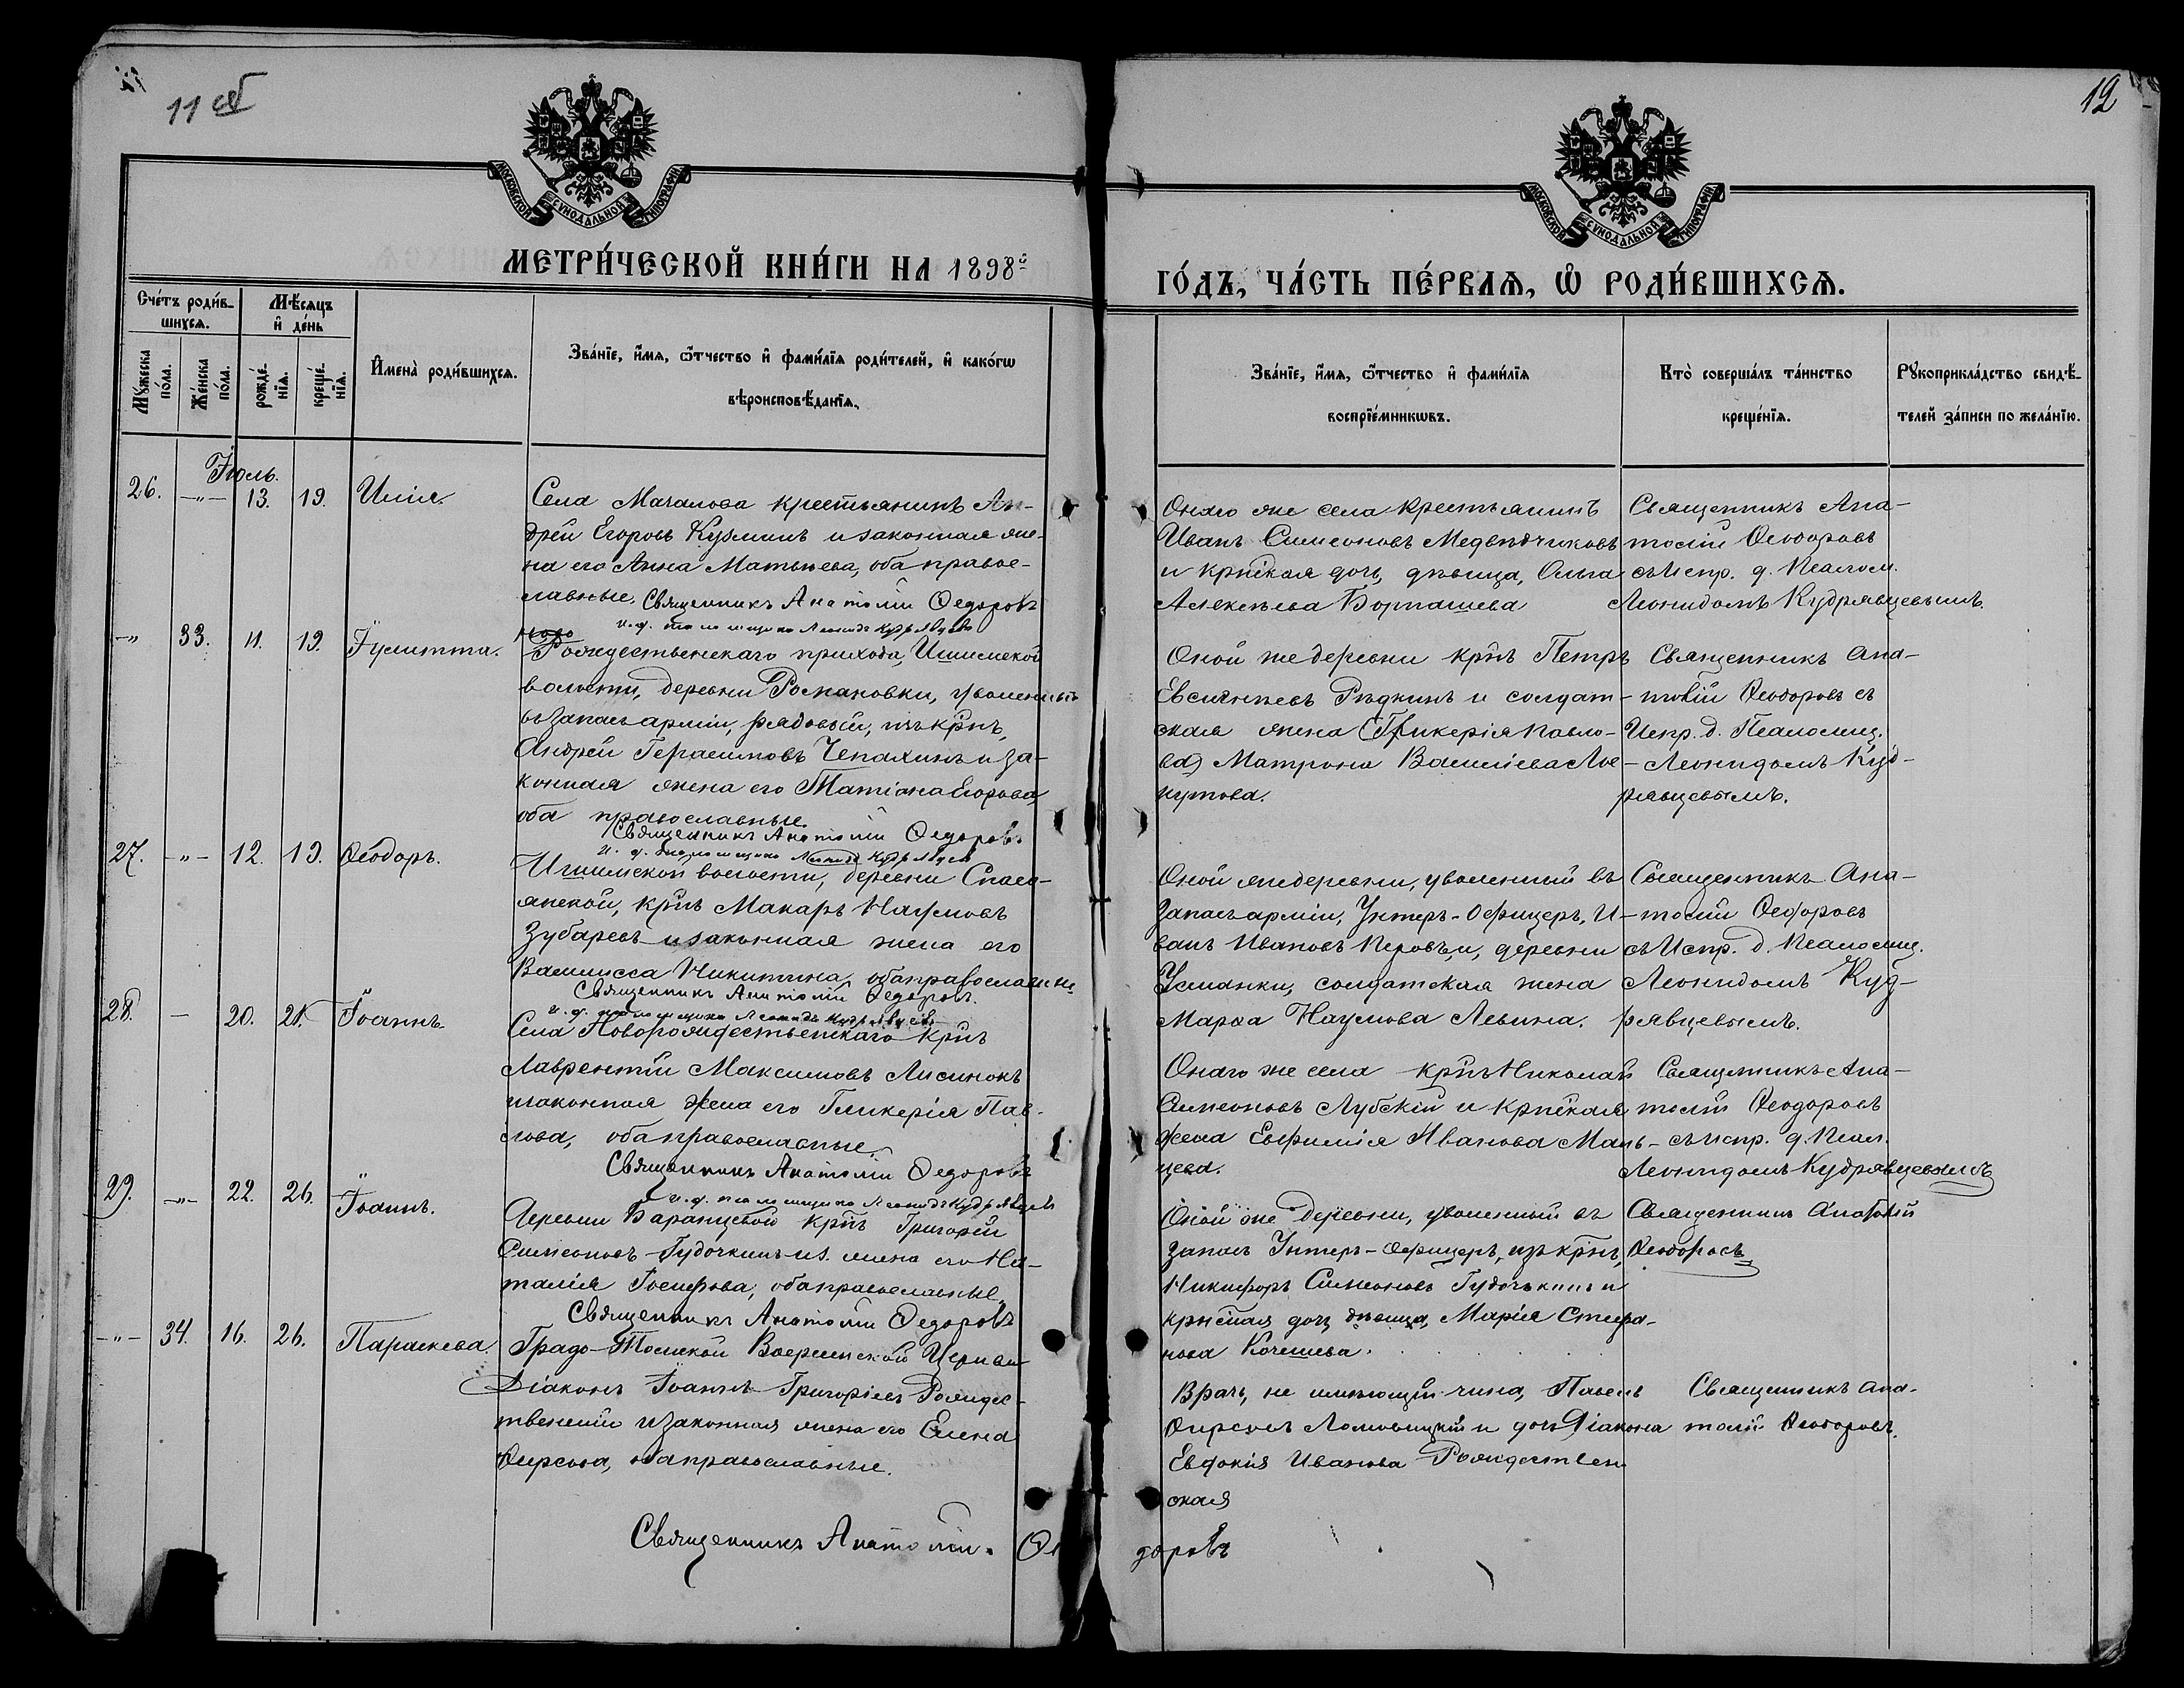 11 об
12
МОСКОВСКОЙ СѴНОДАЛЬНОЙ ТИПОГРАФІИ
МОСКОВСКОЙ СѴНОДАЛЬНОЙ ТИПОГРАФІИ
МЕТРИ́ЧЕСКОЙ КНИ́ГИ НА 1898й
ГО́ДЪ, ЧА́СТЬ ПЕ́РВАѦ, Ѡ РОДИ́ВШИХСѦ.
Сче́тъ роди́в-
шихсѧ.
Мѣ́сяцъ
и де́нь
Мꙋ́жеска
по́ла.
Же́нска
по́ла.
рожде́-
нїѧ.
креще́-
нїѧ.
Имена̀ роди́вшихсѧ.
Зва́нїе, и́мѧ, ѻ҆́тчество и фами́лїѧ роди́телей, и како́гѡ
вѣроисповѣ́данїѧ.
Зва́нїе, и́мѧ, ѻ҆́тчество и фами́лїѧ
воспрїе́мникѡвъ.
Кто̀ соверша́лъ та́инство
креще́нїѧ.
Рꙋкоприкла́дство свидѣ́-
телей за́писи по жела́нїю.
Іюль.
26. -"- 13. 19. Илія.
Села Мачалова крестьянинъ Ан-
дрей Егоровъ Кузминъ и законная же-
на его Анна Матвѣева, оба правос-
лавные. Священникъ Анатолій Ѳедоровъ
и. д. псаломщика Леонидъ Кудрявцевъ
Онаго же села крестьянинъ
Иванъ Симеоновъ Медвѣдчиковъ
и крпская дочь, дѣвица, Ольга
Алексѣева Борташева
Священникъ Ана-
толій Ѳеодоровъ
съ Испр. д. Псалом.
Леонидомъ Кудрявцевымъ.
-" 33. 11. 19. Іулитта.
Рождественскаго прихода, Ишимской
волости, деревни Романовки, уволенный
въ запасъ арміи, рядовый, изъ крпъ,
Андрей Герасимовъ Чепахинъ и за-
конная жена его Татіана Егорова
оба православные.
Священникъ Анатолій Ѳедоровъ
и. д. псаломщика Леонидъ Кудрявцевъ
Оной же деревни крпъ Петръ
Евсигнѣевъ Рѣдкинъ и солдат-
ская жена (Гликерія Павло-
ва) Матрона Василіева Лос-
кутова.
Священникъ Ана-
толій Ѳеодоровъ съ
Испр. д. Псаломщ.
Леонидомъ Куд-
рявцевымъ.
27. -"- 12. 19. Ѳеодоръ.
Ишимской волости, деревни Спас-
ской, крпъ Макаръ Наумовъ
Зубаревъ и законная жена его
Василисса Никитина, оба православные
Священникъ Анатолій Ѳедоровъ.
и. д. псаломщика Леонидъ Кудрявцевъ
Оной же деревни, уволенный въ
запасъ арміи, Унтеръ-Офицеръ, И-
ванъ Ивановъ Перовъ, и, деревни
Усманки, солдатская жена
Марѳа Наумова Левина.
Священникъ Ана-
толій Ѳеодоровъ
съ Испр. д. Псаломщ.
Леонидомъ Куд-
рявцевымъ.
28. - 20. 21. Іоаннъ.
Села Новорождественскаго крпъ
Лаврентій Максимовъ Лисинокъ
и законная жена его Гликерія Пав-
лова, оба православные.
Священникъ Анатолій Ѳедоровъ
и. д. псаломщика Леонидъ Кудрявцевъ
Онаго же села крпъ Николай
Симеоновъ Лубскій и крпская
жена Евфимія Иванова Маль-
цева.
Священникъ Ана-
толій Ѳеодоровъ
съ испр. д. Псал.
Леонидомъ Кудрявцевымъ
29. -"- 22. 26. Іоаннъ.
Деревни Баранцевой крпъ Григорій
Симеоновъ Гудочкинъ и з. жена его На-
талія Іосифова, оба православные
Священникъ Анатолій Ѳедоровъ
Оной же деревни, уволенный въ
запасъ Унтеръ-Офицеръ, изъ крпъ,
Никифоръ Симеоновъ Гудочькинъ и
крпская дочь дѣвица, Марія Стефа-
нова Кочешева.
Священникъ Анатолій
Ѳеодоровъ
-"- 34. 16. 26. Параскева.
Градо-Томской Воскресенской Церкви
Діаконъ Іоаннъ Григоріевъ Рождес-
твенскій и законная жена его Елена
Ѳирсова, оба православные.
Врачь, не имѣющій чина, Павелъ
Ѳирсовъ Ломовицкій и дочь Діакона
Евдокія Иванова Рождествен
ская
Священникъ Ана-
толій Ѳеодоровъ.
Священникъ Анатолій Ѳе доровъ